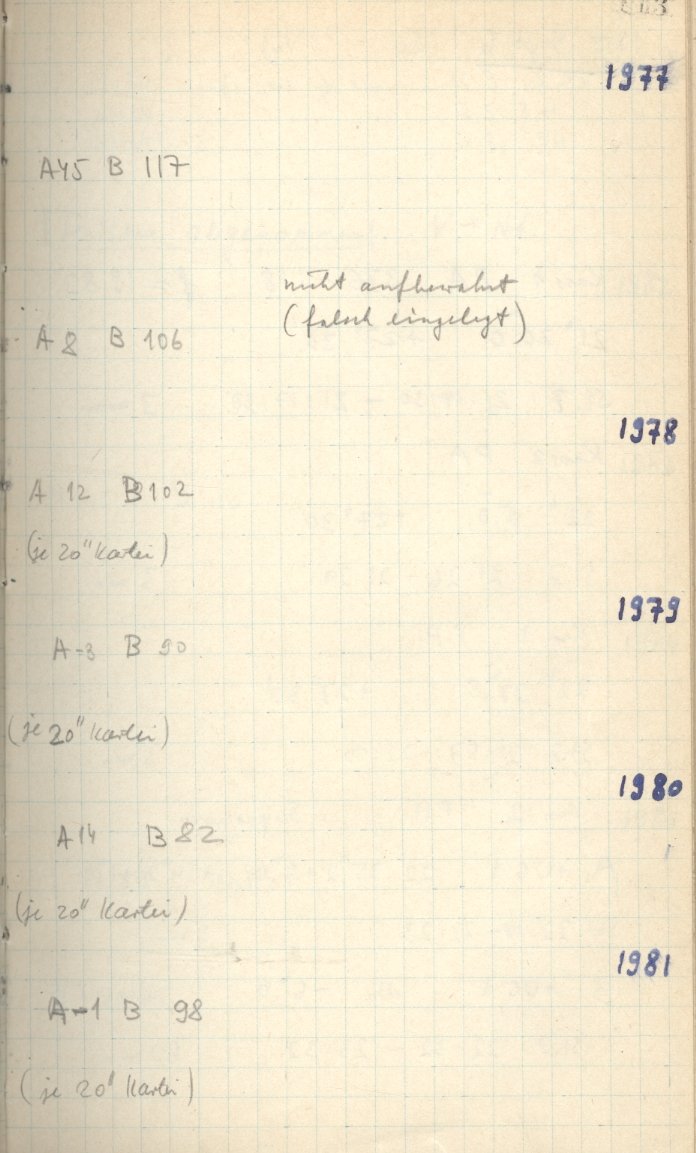 1977
A45 B 117
nicht aufbewahrt
(falsch eingelegt)
A 8 B 106
1978
A 12 B 102
(je 20" Kartei)
1979
A-3 B 90
(je 20" Kartei)
1980
A 14 B 82
(je 20" Kartei)
1981
A-1 B 98
(je 20" Kartei)